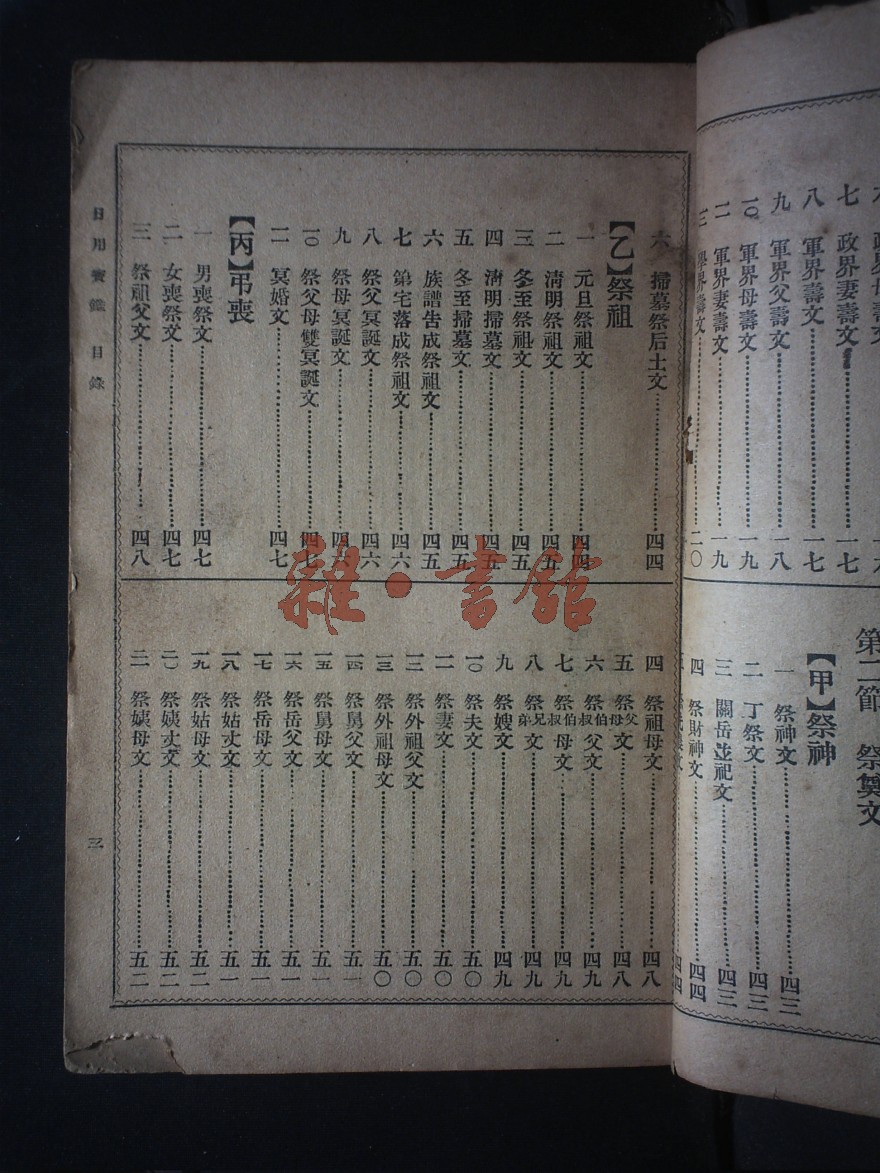 政界妻壽文
七 政界妻壽文 一七
八 軍界壽文 一七
九 軍界父壽文 一八
一〇 軍界母壽文 一九
一一 軍界妻壽文 一九
壽文 二〇
第二節 祭奠文
【甲】祭神
一 祭神文 四三
二 丁祭文 四三
三 關岳並祀文 四三
四 祭財神文 四四
四四
六 掃墓祭后土文 四四
【乙】祭祖
一 元旦祭祖文 四四
二 清明祭祖文 四五
三 冬至祭祖文 四五
四 清明掃墓文 四五
五 冬至掃墓文 四五
六 族譜告成祭祖文 四五
七 第宅落成祭祖文 四六
八 祭父冥誕文 四六
九 祭母冥誕文 四六
一〇 祭父母雙冥誕文 四七
一一 冥婚文 四七
【丙】弔喪
一 男喪祭文 四七
二 女喪祭文 四七
三 祭祖父文 四八
四 祭祖母文 四八
五 祭父母文 四八
六 祭伯叔父文 四九
七 祭伯叔母文 四九
八 祭兄弟文 四九
九 祭嫂文 四九
一〇 祭夫文 五〇
一一 祭妻文 五〇
一二 祭外祖父文 五〇
一三 祭外祖母文 五〇
一四 祭舅父文 五一
一五 祭舅母文 五一
一六 祭岳父文 五一
一七 祭岳母文 五一
一八 祭姑丈文 五一
一九 祭姑母文 五二
二〇 祭姨丈文 五二
二一 祭姨母文 五二
日用寶鑑 目錄
三
雜·書館